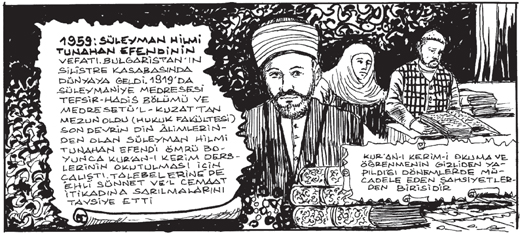 1959: SÜLEYMAN HİLMİ
TUNAHAN EFENDİNİN
VEFATI. BULGARİSTAN'IN
SİLİSTRE KASABASINDA
DÜNYAYA GELDİ. 1919'DA
SÜLEYMANİYE MEDRESESİ
TEFSİR-HADİS BÖLÜMÜ VE
MEDRESETÜ'L-KUZAT'TAN
MEZUN OLDU (HUKUK FAKÜLTESİ)
SON DEVRİN DİN ÂLİMLERİN-
DEN OLAN SÜLEYMAN HİLMİ
TUNAHAN EFENDİ ÖMRÜ BO-
YUNCA KURAN-I KERİM DERS-
LERİNİN OKUTULMASI İÇİN
ÇALIŞTI. TALEBELERİNE DE
EHLİ SÜNNET VE'L CEMAAT
İTİKADINA SARILMALARINI
TAVSİYE ETTİ
KUR'AN-I KERİM-İ OKUMA VE
ÖĞRENMENİN GİZLİDEN YA-
PILDIĞI DÖNEMLERDE MÜ-
CADELE EDEN ŞAHSİYETLER-
DEN BİRİSİDİR